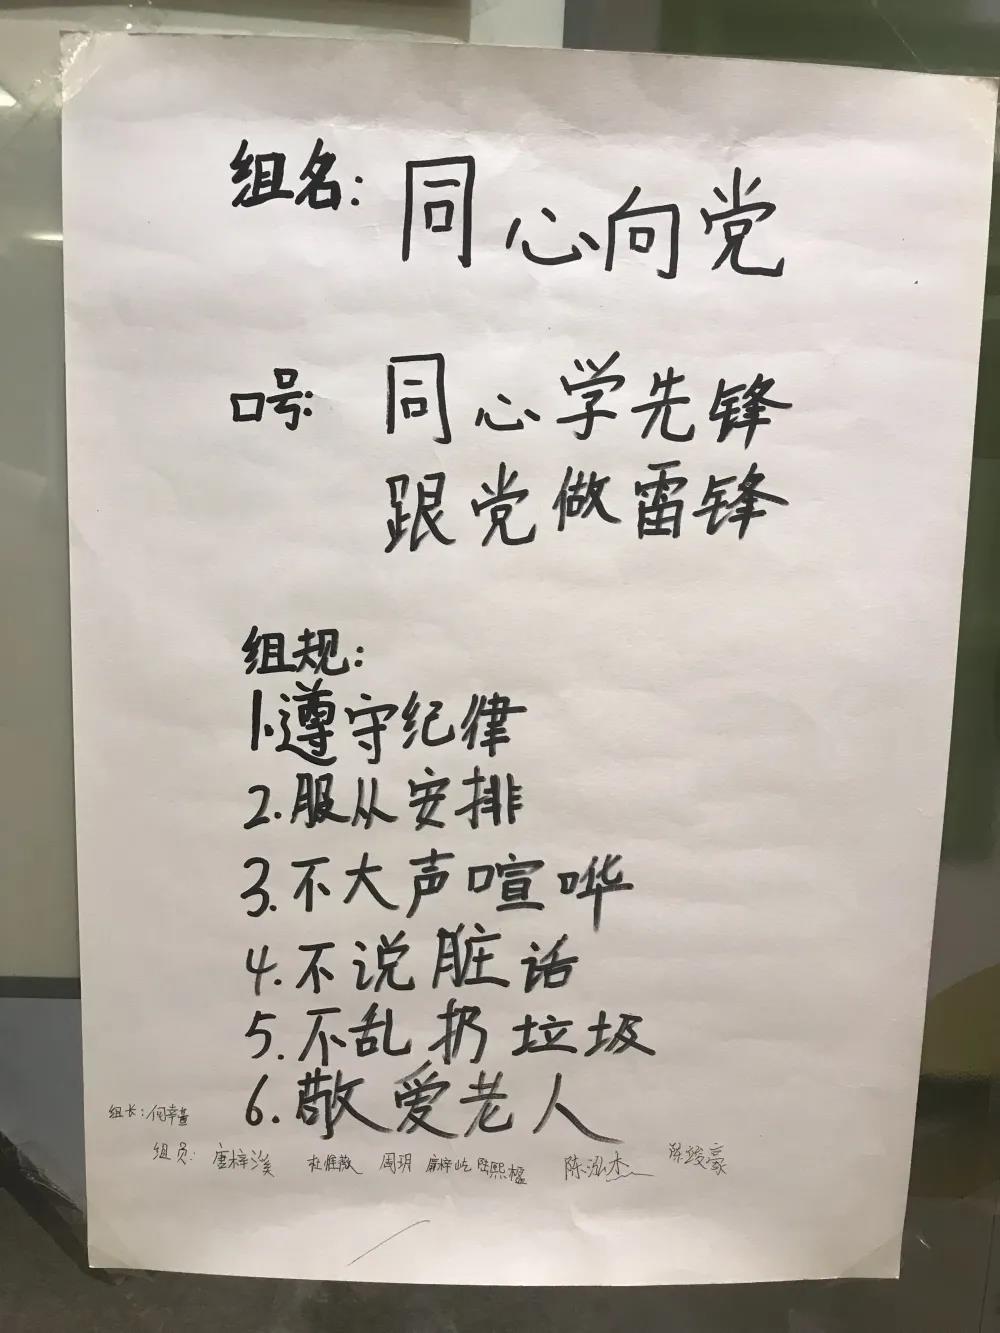 组名：同心向党
口号：同心学先锋
跟党做雷锋
组规：
1.遵守纪律
2.服从安排
3.不大声喧哗
4.不说脏话
5.不乱扔垃圾
6.敬爱老人
组长：何
组员：唐梓溪 周玥 陈泓杰 陈竣豪